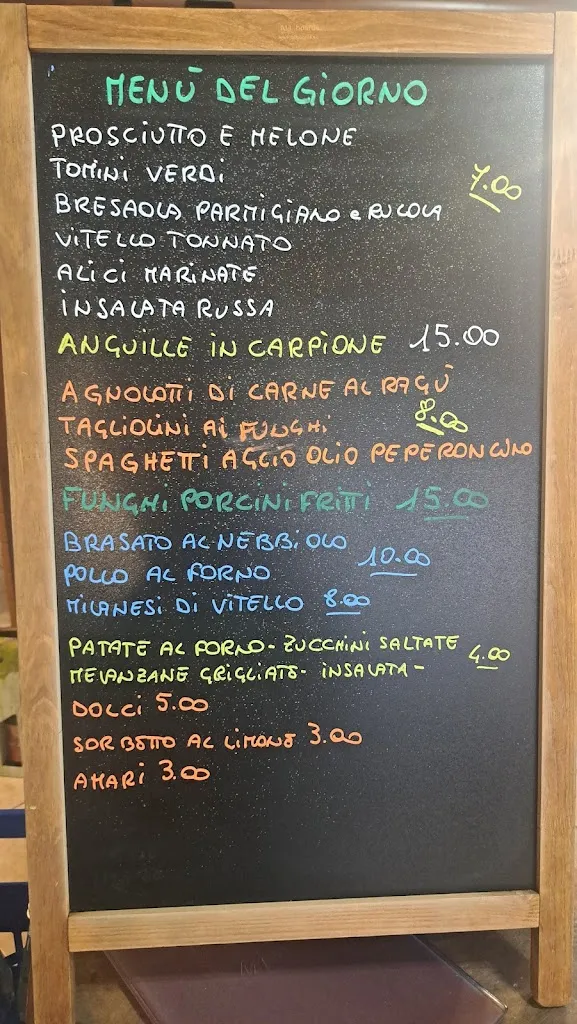 MENÙ DEL GIORNO
PROSCIUTTO E MELONE
TOMINI VERDI
7.00
BRESAOLA PARMIGIANO e RUCOLA
VITELLO TONNATO
ALICI MARINATE
INSALATA RUSSA
ANGUILLE IN CARPIONE 15.00
AGNOLOTTI DI CARNE AL RAGÙ
8.00
TAGLIOLINI AI FUNGHI
SPAGHETTI AGLIO OLIO PEPERONCINO
FUNGHI PORCINI FRITTI 15.00
BRASATO AL NEBBIOLO
10.00
POLLO AL FORNO
MILANESI DI VITELLO 8.00
PATATE AL FORNO - ZUCCHINI SALTATE
4.00
MELANZANE GRIGLIATE - INSALATA -
DOLCI 5.00
SORBETTO AL LIMONE 3.00
AMARI 3.00